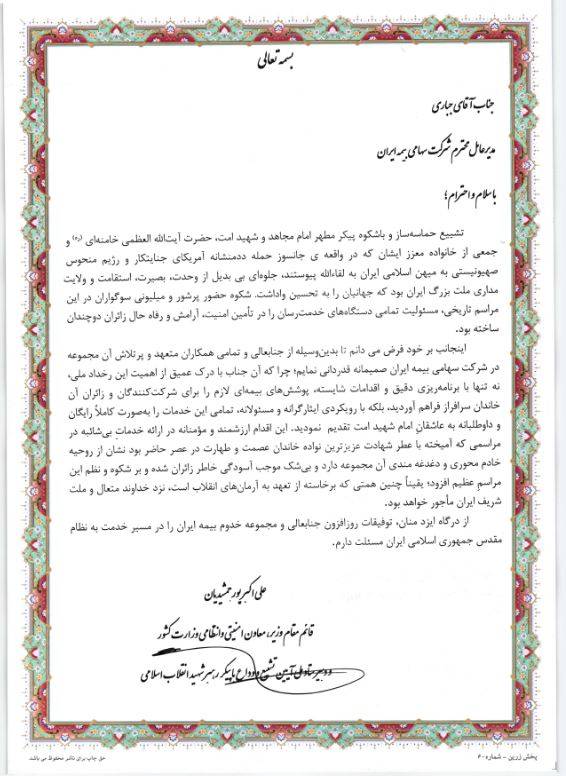 بسمه تعالی
جناب آقای جباری
مدیرعامل محترم شرکت سهامی بیمه ایران
با سلام و احترام؛
تشییع حماسه‌ساز و باشکوه پیکر مطهر امام مجاهد و شهید امت، حضرت آیت‌الله العظمی خامنه‌ای (ره) و
جمعی از خانواده معزز ایشان که در واقعه ی جانسوز حمله ددمنشانه آمریکای جنایتکار و رژیم منحوس
صهیونیستی به میهن اسلامی ایران به لقاءالله پیوستند، جلوه‌ای بی بدیل از وحدت، بصیرت، استقامت و ولایت
مداری ملت بزرگ ایران بود که جهانیان را به تحسین واداشت. شکوه حضور پرشور و میلیونی سوگواران در این
مراسم تاریخی، مسئولیت تمامی دستگاه‌های خدمت‌رسان را در تأمین امنیت، آرامش و رفاه حال زائران دوچندان
ساخته بود.
اینجانب بر خود فرض می دانم تا بدین‌وسیله از جنابعالی و تمامی همکاران متعهد و پرتلاش آن مجموعه
در شرکت سهامی بیمه ایران صمیمانه قدردانی نمایم؛ چرا که آن جناب با درک عمیق از اهمیت این رخداد ملی،
نه تنها با برنامه‌ریزی دقیق و اقدامات شایسته، پوشش‌های بیمه‌ای لازم را برای شرکت‌کنندگان و زائران آن
خاندان سرافراز فراهم آوردید، بلکه با رویکردی ایثارگرانه و مسئولانه، تمامی این خدمات را به‌صورت کاملاً رایگان
و داوطلبانه به عاشقان امام شهید امت تقدیم نمودید. این اقدام ارزشمند و مؤمنانه در ارائه خدمات بی‌شائبه در
مراسمی که آمیخته با عطر شهادت عزیزترین نواده خاندان عصمت و طهارت در عصر حاضر بود نشان از روحیه
خادم محوری و دغدغه مندی آن مجموعه دارد و بی‌شک موجب آسودگی خاطر زائران شده و بر شکوه و نظم این
مراسم عظیم افزود؛ یقیناً چنین همتی که برخاسته از تعهد به آرمان‌های انقلاب است، نزد خداوند متعال و ملت
شریف ایران مأجور خواهد بود.
از درگاه ایزد منان، توفیقات روزافزون جنابعالی و مجموعه خدوم بیمه ایران را در مسیر خدمت به نظام
مقدس جمهوری اسلامی ایران مسئلت دارم.
علی اکبر پورجمشیدیان
قائم مقام وزیر، معاون امنیتی و انتظامی وزارت کشور
و دبیر ستاد ملی آیین تشییع و وداع با پیکر رهبر شهید انقلاب اسلامی
پخش زرین - شماره ۶۰
حق چاپ برای ناشر محفوظ می باشد